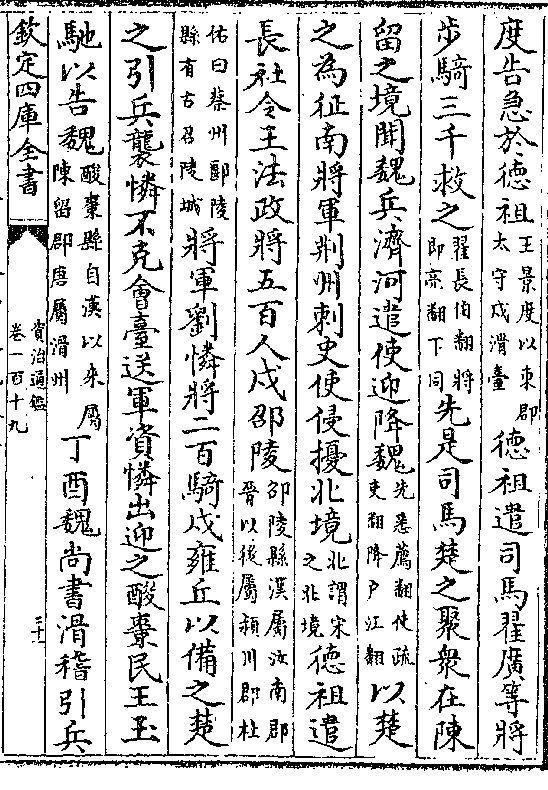 度告急於德祖王景度以東郡太守戍滑臺德祖遣司馬翟廣等將
步騎三千救之翟長伯翻將即亮翻下同先是司馬楚之聚衆在陳
留之境聞魏兵濟河遣使迎降魏先悉薦翻使疏吏翻降戶江翻以楚
之為征南將軍荆州刺史使侵擾北境北謂宋之北境德祖遣
長社令王法政將五百人戍邵陵邵陵縣漢屬汝南郡晉以後屬潁川郡杜
佑曰蔡州郾陵縣有古召陵城將軍劉憐將二百騎戍雍丘以備之楚
之引兵襲憐不克會臺送軍資憐出迎之酸棗民王玉
馳以告魏酸棗縣自漢以來屬陳留郡唐屬滑州丁酉魏尚書滑稽引兵
欽定四庫全書
資治通鑑
卷一百十九